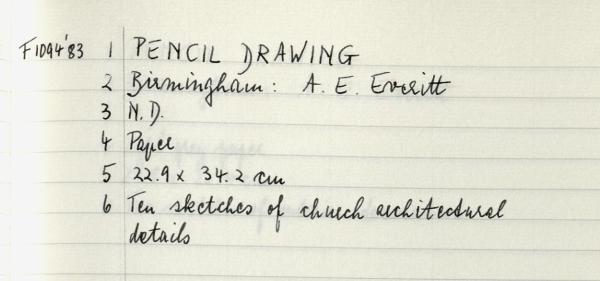 F1094'83 1 PENCIL DRAWING
2 Birmingham: A. E. Everitt
3 N.D.
4 Paper
5 22.9 x 34.2 cm
6 Ten sketches of church architectural
details